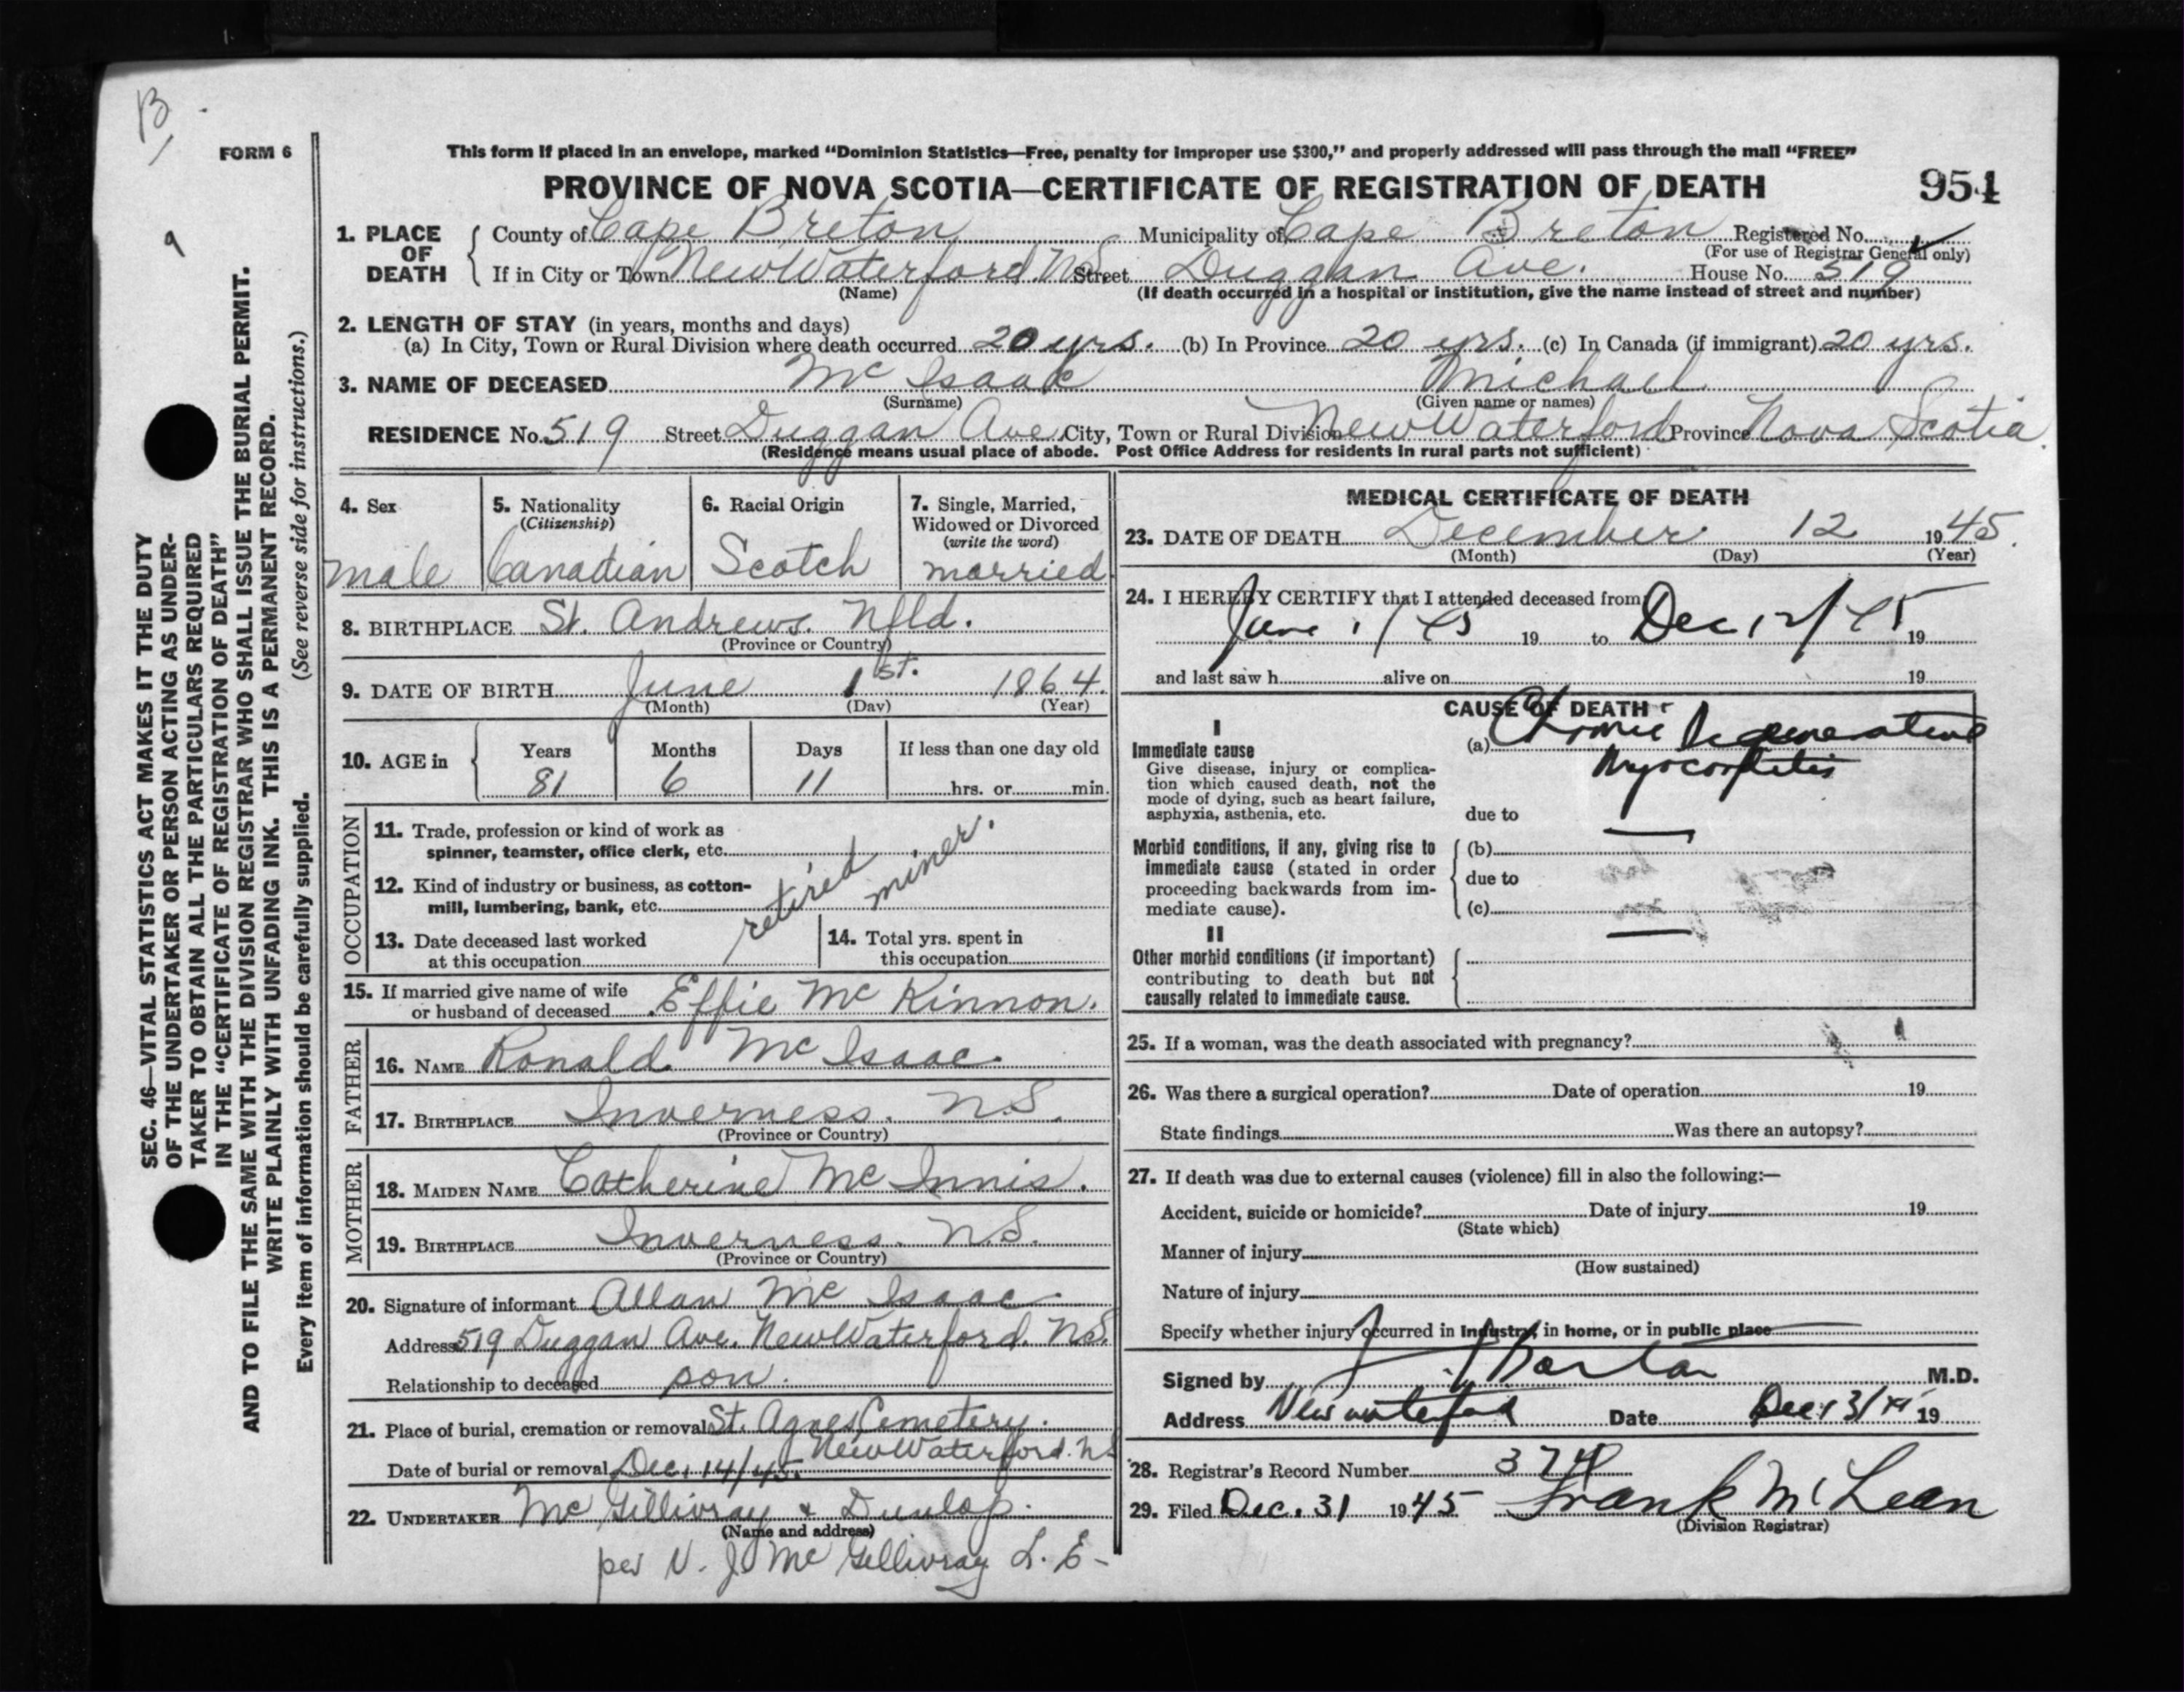 B
9
FORM 6
This form if placed in an envelope, marked “Dominion Statistics—Free, penalty for improper use $300,” and properly addressed will pass through the mail “FREE”
PROVINCE OF NOVA SCOTIA—CERTIFICATE OF REGISTRATION OF DEATH 951
SEC. 46—VITAL STATISTICS ACT MAKES IT THE DUTY
OF THE UNDERTAKER OR PERSON ACTING AS UNDER-
TAKER TO OBTAIN ALL THE PARTICULARS REQUIRED
IN THE “CERTIFICATE OF REGISTRATION OF DEATH”
AND TO FILE THE SAME WITH THE DIVISION REGISTRAR WHO SHALL ISSUE THE BURIAL PERMIT.
WRITE PLAINLY WITH UNFADING INK. THIS IS A PERMANENT RECORD.
Every item of information should be carefully supplied. (See reverse side for instructions.)
1. PLACE OF DEATH
County of Cape Breton Municipality of Cape Breton Registered No. ✓
(For use of Registrar General only)
If in City or Town New Waterford N.S. Street Duggan Ave. House No. 519
(Name) (If death occurred in a hospital or institution, give the name instead of street and number)
2. LENGTH OF STAY (in years, months and days)
(a) In City, Town or Rural Division where death occurred 20 yrs. (b) In Province 20 yrs. (c) In Canada (if immigrant) 20 yrs.
3. NAME OF DECEASED Mc Isaac Michael
(Surname) (Given name or names)
RESIDENCE No. 519 Street Duggan Ave City, Town or Rural Division New Waterford Province Nova Scotia.
(Residence means usual place of abode. Post Office Address for residents in rural parts not sufficient)
4. Sex
male
5. Nationality
(Citizenship)
Canadian
6. Racial Origin
Scotch
7. Single, Married,
Widowed or Divorced
(write the word)
married
8. BIRTHPLACE St. Andrews. Nfld.
(Province or Country)
9. DATE OF BIRTH June 1st. 1864.
(Month) (Day) (Year)
10. AGE in Years Months Days If less than one day old
81 6 11 hrs. or min.
OCCUPATION
11. Trade, profession or kind of work as
spinner, teamster, office clerk, etc.
12. Kind of industry or business, as cotton-
mill, lumbering, bank, etc.
retired miner.
13. Date deceased last worked
at this occupation
14. Total yrs. spent in
this occupation
15. If married give name of wife
or husband of deceased Effie Mc Kinnon.
FATHER
16. NAME Ronald Mc Isaac.
17. BIRTHPLACE Inverness. N.S.
(Province or Country)
MOTHER
18. MAIDEN NAME Catherine Mc Innis.
19. BIRTHPLACE Inverness. N.S.
(Province or Country)
20. Signature of informant Allan Mc Isaac.
Address 519 Duggan Ave. New Waterford. N.S.
Relationship to deceased son.
21. Place of burial, cremation or removal St. Agnes Cemetery.
New Waterford. N.S
Date of burial or removal Dec. 14/45.
22. UNDERTAKER Mc Gillivray & Dunlop.
(Name and address)
per N. J. Mc Gillivray L. E-
MEDICAL CERTIFICATE OF DEATH
23. DATE OF DEATH December 12 1945.
(Month) (Day) (Year)
24. I HEREBY CERTIFY that I attended deceased from
June 1/45 19 to Dec 12/45 19
and last saw h alive on 19
CAUSE OF DEATH
I
Immediate cause
Give disease, injury or complica-
tion which caused death, not the
mode of dying, such as heart failure,
asphyxia, asthenia, etc.
(a) Chronic Degenerative
Myocarditis
due to
Morbid conditions, if any, giving rise to
immediate cause (stated in order
proceeding backwards from im-
mediate cause).
(b)
due to
(c)
II
Other morbid conditions (if important)
contributing to death but not
causally related to immediate cause.
25. If a woman, was the death associated with pregnancy?
26. Was there a surgical operation? Date of operation 19
State findings Was there an autopsy?
27. If death was due to external causes (violence) fill in also the following:—
Accident, suicide or homicide? Date of injury 19
(State which)
Manner of injury
(How sustained)
Nature of injury
Specify whether injury occurred in industry, in home, or in public place
Signed by M.D.
Address New Waterford Date Dec 13/45 19
28. Registrar's Record Number 374
29. Filed Dec. 31 1945 Frank McLean
(Division Registrar)